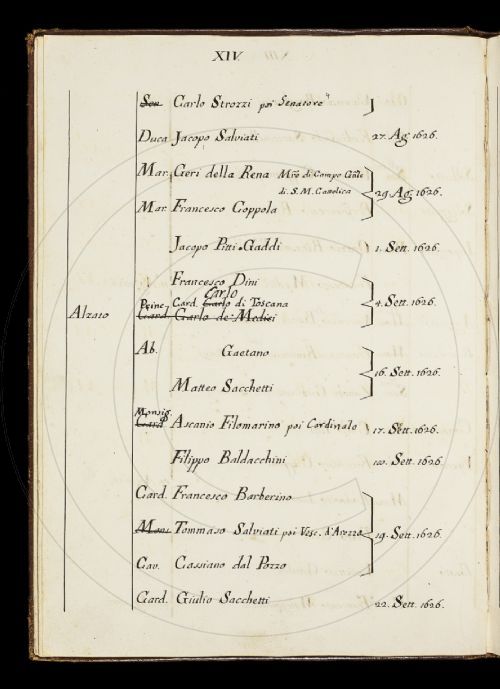 XIV.
Sen Carlo Strozzi poi Senatore
Duca Jacopo Salviati 27. Ag. 1626.
Mar. Geri della Rena Mro di Campo Gnle
di S. M. Cattolica 29. Ag. 1626.
Mar. Francesco Coppola
Jacopo Pitti-Gaddi 1. Sett. 1626.
Francesco Dini
Carlo
Princ. Card. Carlo di Toscana 4. Sett. 1626.
Alzato Card. Carlo de' Medici
Ab. Gaetano
16. Sett. 1626.
Matteo Sacchetti
Monsig.
Card Ascanio Filomarino poi Cardinale 17. Sett. 1626.
Filippo Baldacchini Sett. 1626.
Card. Francesco Barberino
Mons. Tommaso Salviati poi Vesc. d'Arezzo 19. Sett. 1626.
Cav. Cassiano dal Pozzo
Card. Giulio Sacchetti 22. Sett. 1626.